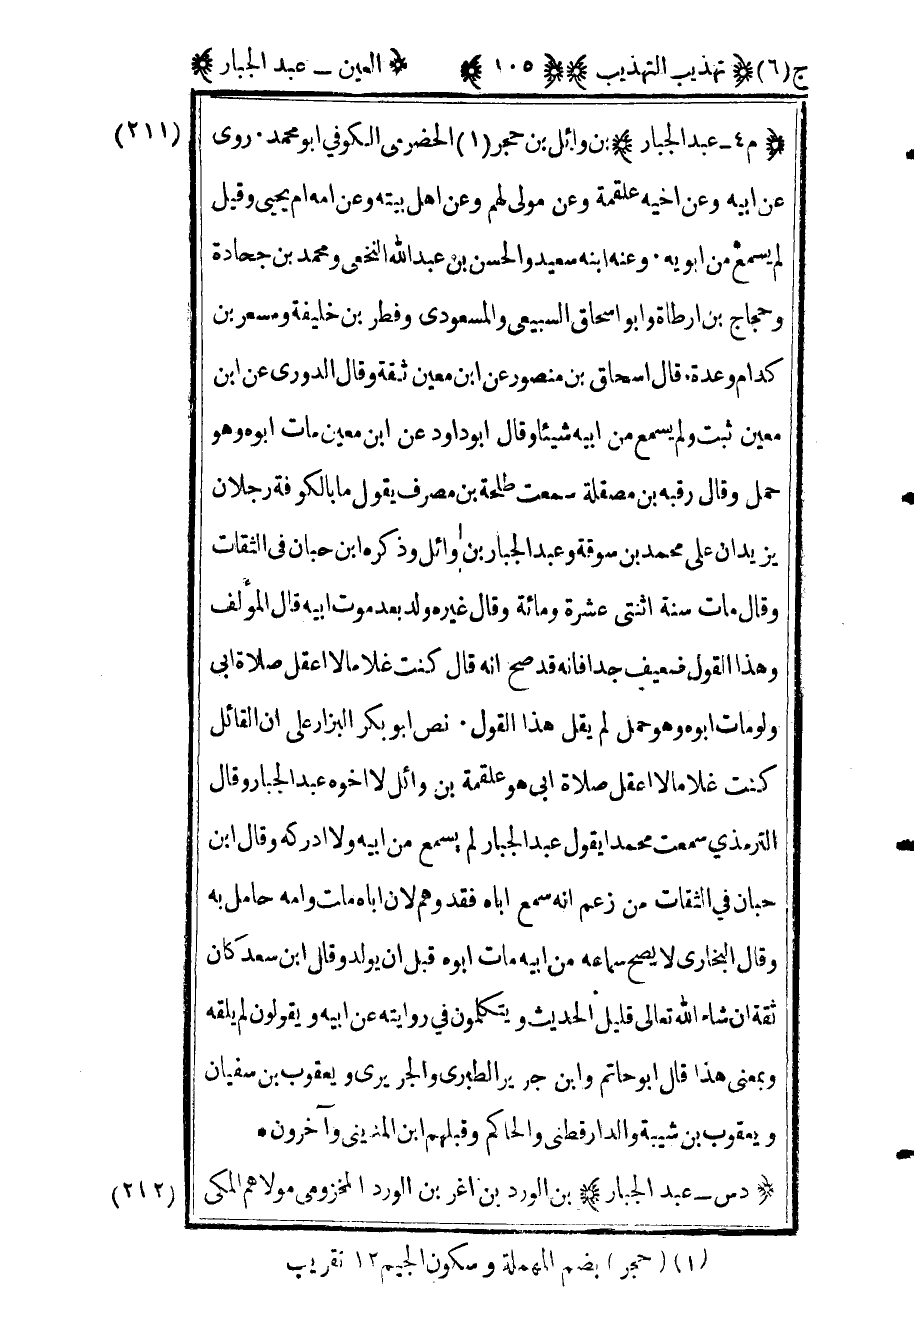 ج(٦) ﴿ تهذيب التهذيب ﴾ ﴿ ١٠٥ ﴾ ﴿ العين ــ عبد الجبار ﴾
(٢١١) ﴿ م٤ ــ عبد الجبار ﴾ بن وائل بن حجر (١) الحضرمى الكوفي ابو محمد ٠ روى
عن ابيه وعن اخيه علقمة وعن مولى لهم وعن اهل بيته وعن امه ام يحيى وقيل
لم يسمع من ابويه ٠ وعنه ابنه سعيد والحسن بن عبد الله النخعى ومحمد بن جحادة
وحجاج بن ارطاة وابو اسحاق السبيعى والمسعودى وفطر بن خليفة ومسعر بن
كدام وعدة ٠ قال اسحاق بن منصور عن ابن معين ثقة وقال الدورى عن ابن
معين ثبت ولم يسمع من ابيه شيئا وقال ابو داود عن ابن معين مات ابوه وهو
حمل وقال رقبه بن مصقلة سمعت طلحة بن مصرف يقول ما بالكوفة رجلان
يزيدان على محمد بن سوقة وعبد الجبار بن وائل وذكره ابن حبان فى الثقات
وقال مات سنة اثنتى عشرة ومائة وقال غيره ولد بعد موت ابيه قال المؤلف
وهذا القول ضعيف جدا فانه قد صح انه قال كنت غلاما لا اعقل صلاة ابى
ولو مات ابوه وهو حمل لم يقل هذا القول ٠ نص ابو بكر البزار على ان القائل
كنت غلاما لا اعقل صلاة ابى هو علقمة بن وائل لا اخوه عبد الجبار وقال
الترمذي سمعت محمدا يقول عبد الجبار لم يسمع من ابيه ولا ادركه وقال ابن
حبان في الثقات من زعم انه سمع اباه فقد وهم لان اباه مات وامه حامل به
وقال البخارى لا يصح سماعه من ابيه مات ابوه قبل ان يولد وقال ابن سعد كان
ثقة ان شاء الله تعالى قليل الحديث ويتكلمون في روايته عن ابيه ويقولون لم يلقه
وبمعنى هذا قال ابو حاتم وابن جرير الطبرى والجريرى ويعقوب بن سفيان
ويعقوب بن شيبة والدارقطنى والحاكم وقبلهم ابن المدينى وآخرون ٠
(٢١٢) ﴿ دس ــ عبد الجبار ﴾ بن الورد بن اغر بن الورد المخزومى مولاهم المكى
(١) (حجر) بضم المهملة وسكون الجيم ١٢ تقريب